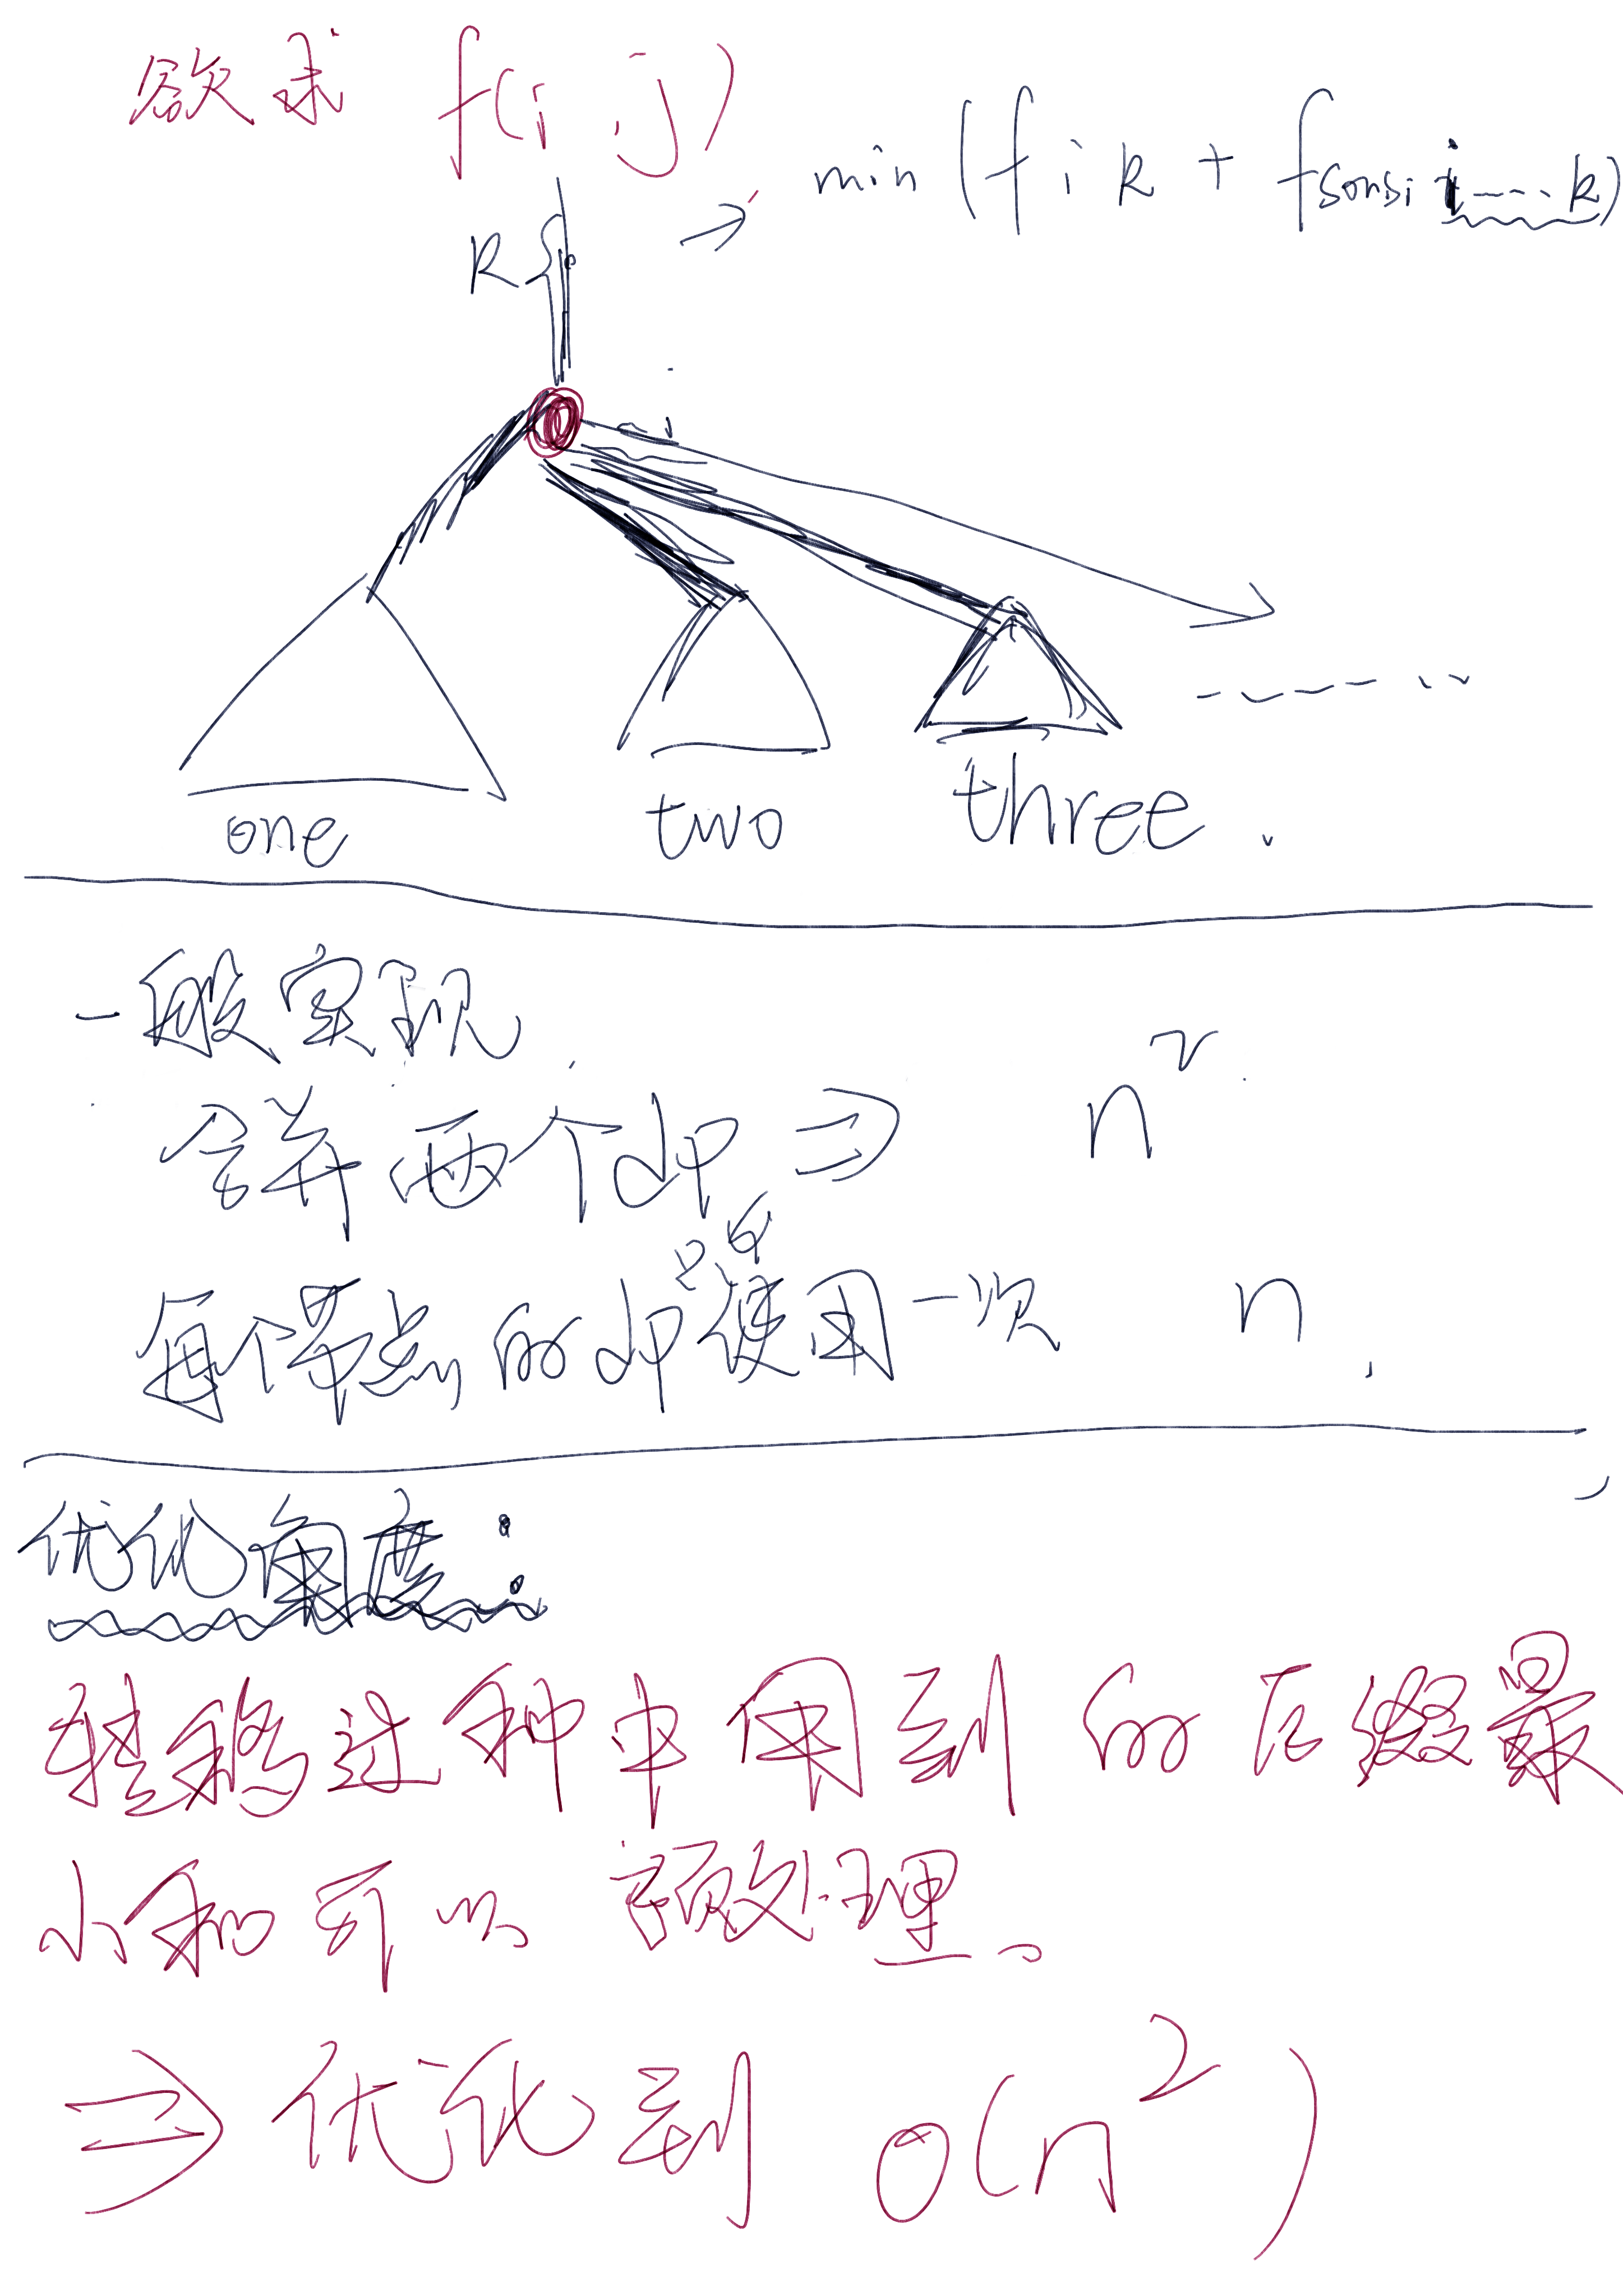 欲求 f(i,j)
→ min(f i k + fsonsi i....k)
k
one two three .
一般实现.
合并两个dp ⇒ n²
每个节点的dp只会使用一次 n.
优化角度:
转移过种中用到的后缀最
小和可以预处理。
⇒ 优化到 O(n²)